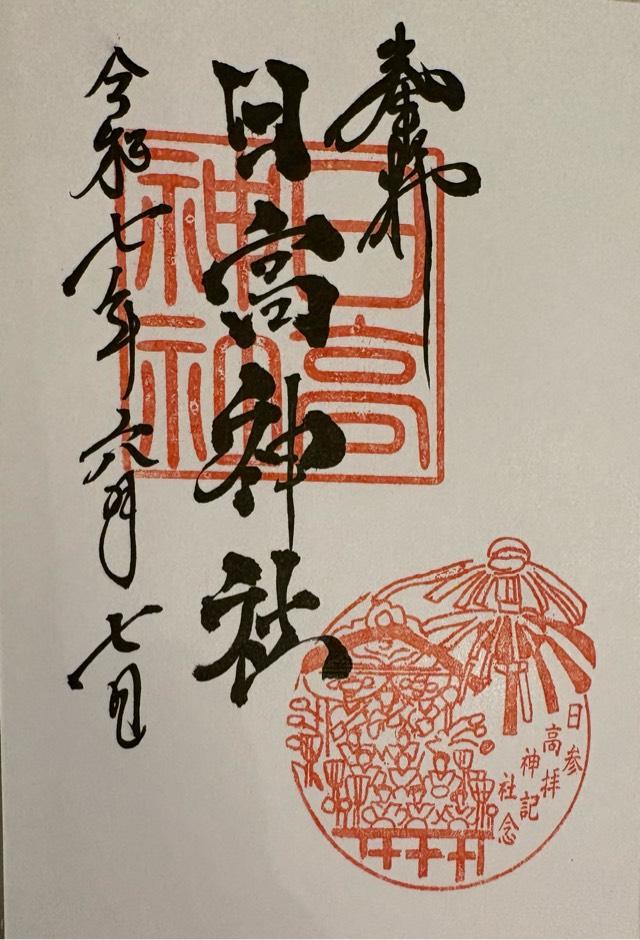 奉拝
日高神社
令和七年六月七日
日高神社
日高神社
参拝記念